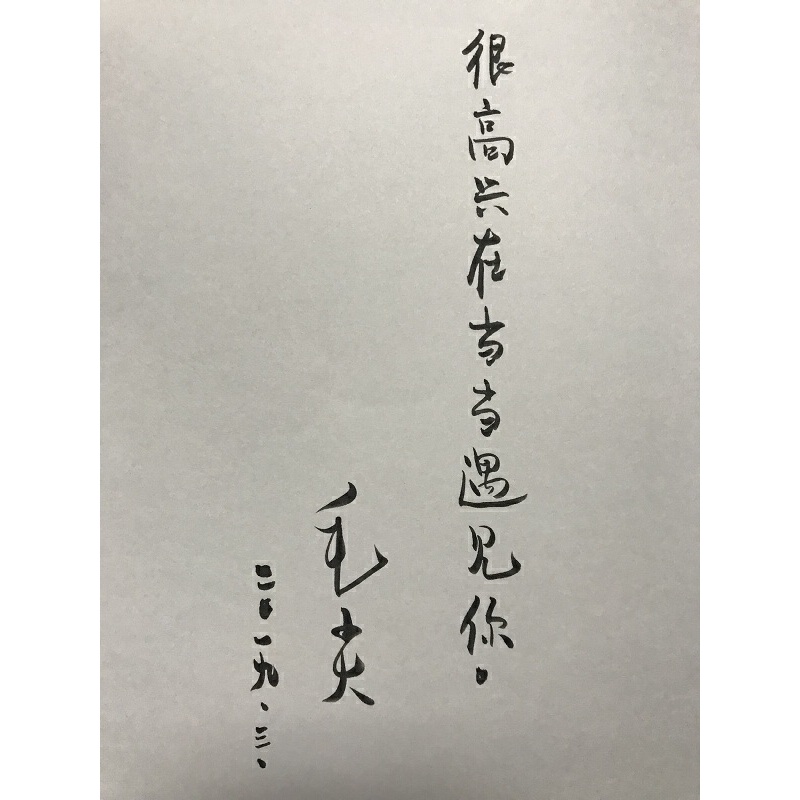 很高兴在当当遇见你。
毛尖
二〇一九、三、